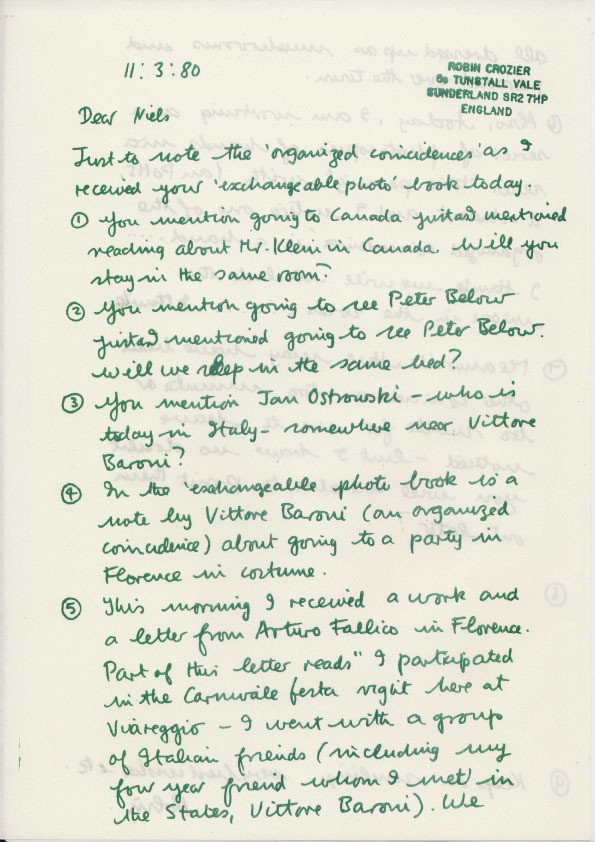 11:3:80
ROBIN CROZIER
TUNSTALL VALE
SUNDERLAND SR2 7HP
ENGLAND
Dear Niels
Just to note the 'organized coincidences' as I
received your 'exchangeable photo' book today.
① You mention going to Canada mentioned
reading about Mr. Klein in Canada. Will you
stay in the same room?
② You mention going to see Peter Below
mentioned going to see Peter Below.
Will we sleep in the same bed?
③ You mention Jan Ostrowski – who is
today in Italy – somewhere near Vittore
Baroni?
④ In the 'exchangeable photo book is a
note by Vittore Baroni (an organized
coincidence) about going to a party in
Florence in costume.
⑤ This morning I received a work and
a letter from Arturo Fallico in Florence.
Part of this letter reads" I participated
in the Carnevale festa right here at
Viareggio – I went with a group
of Italian friends (including my
four year friend whom I met in
the States, Vittore Baroni). We